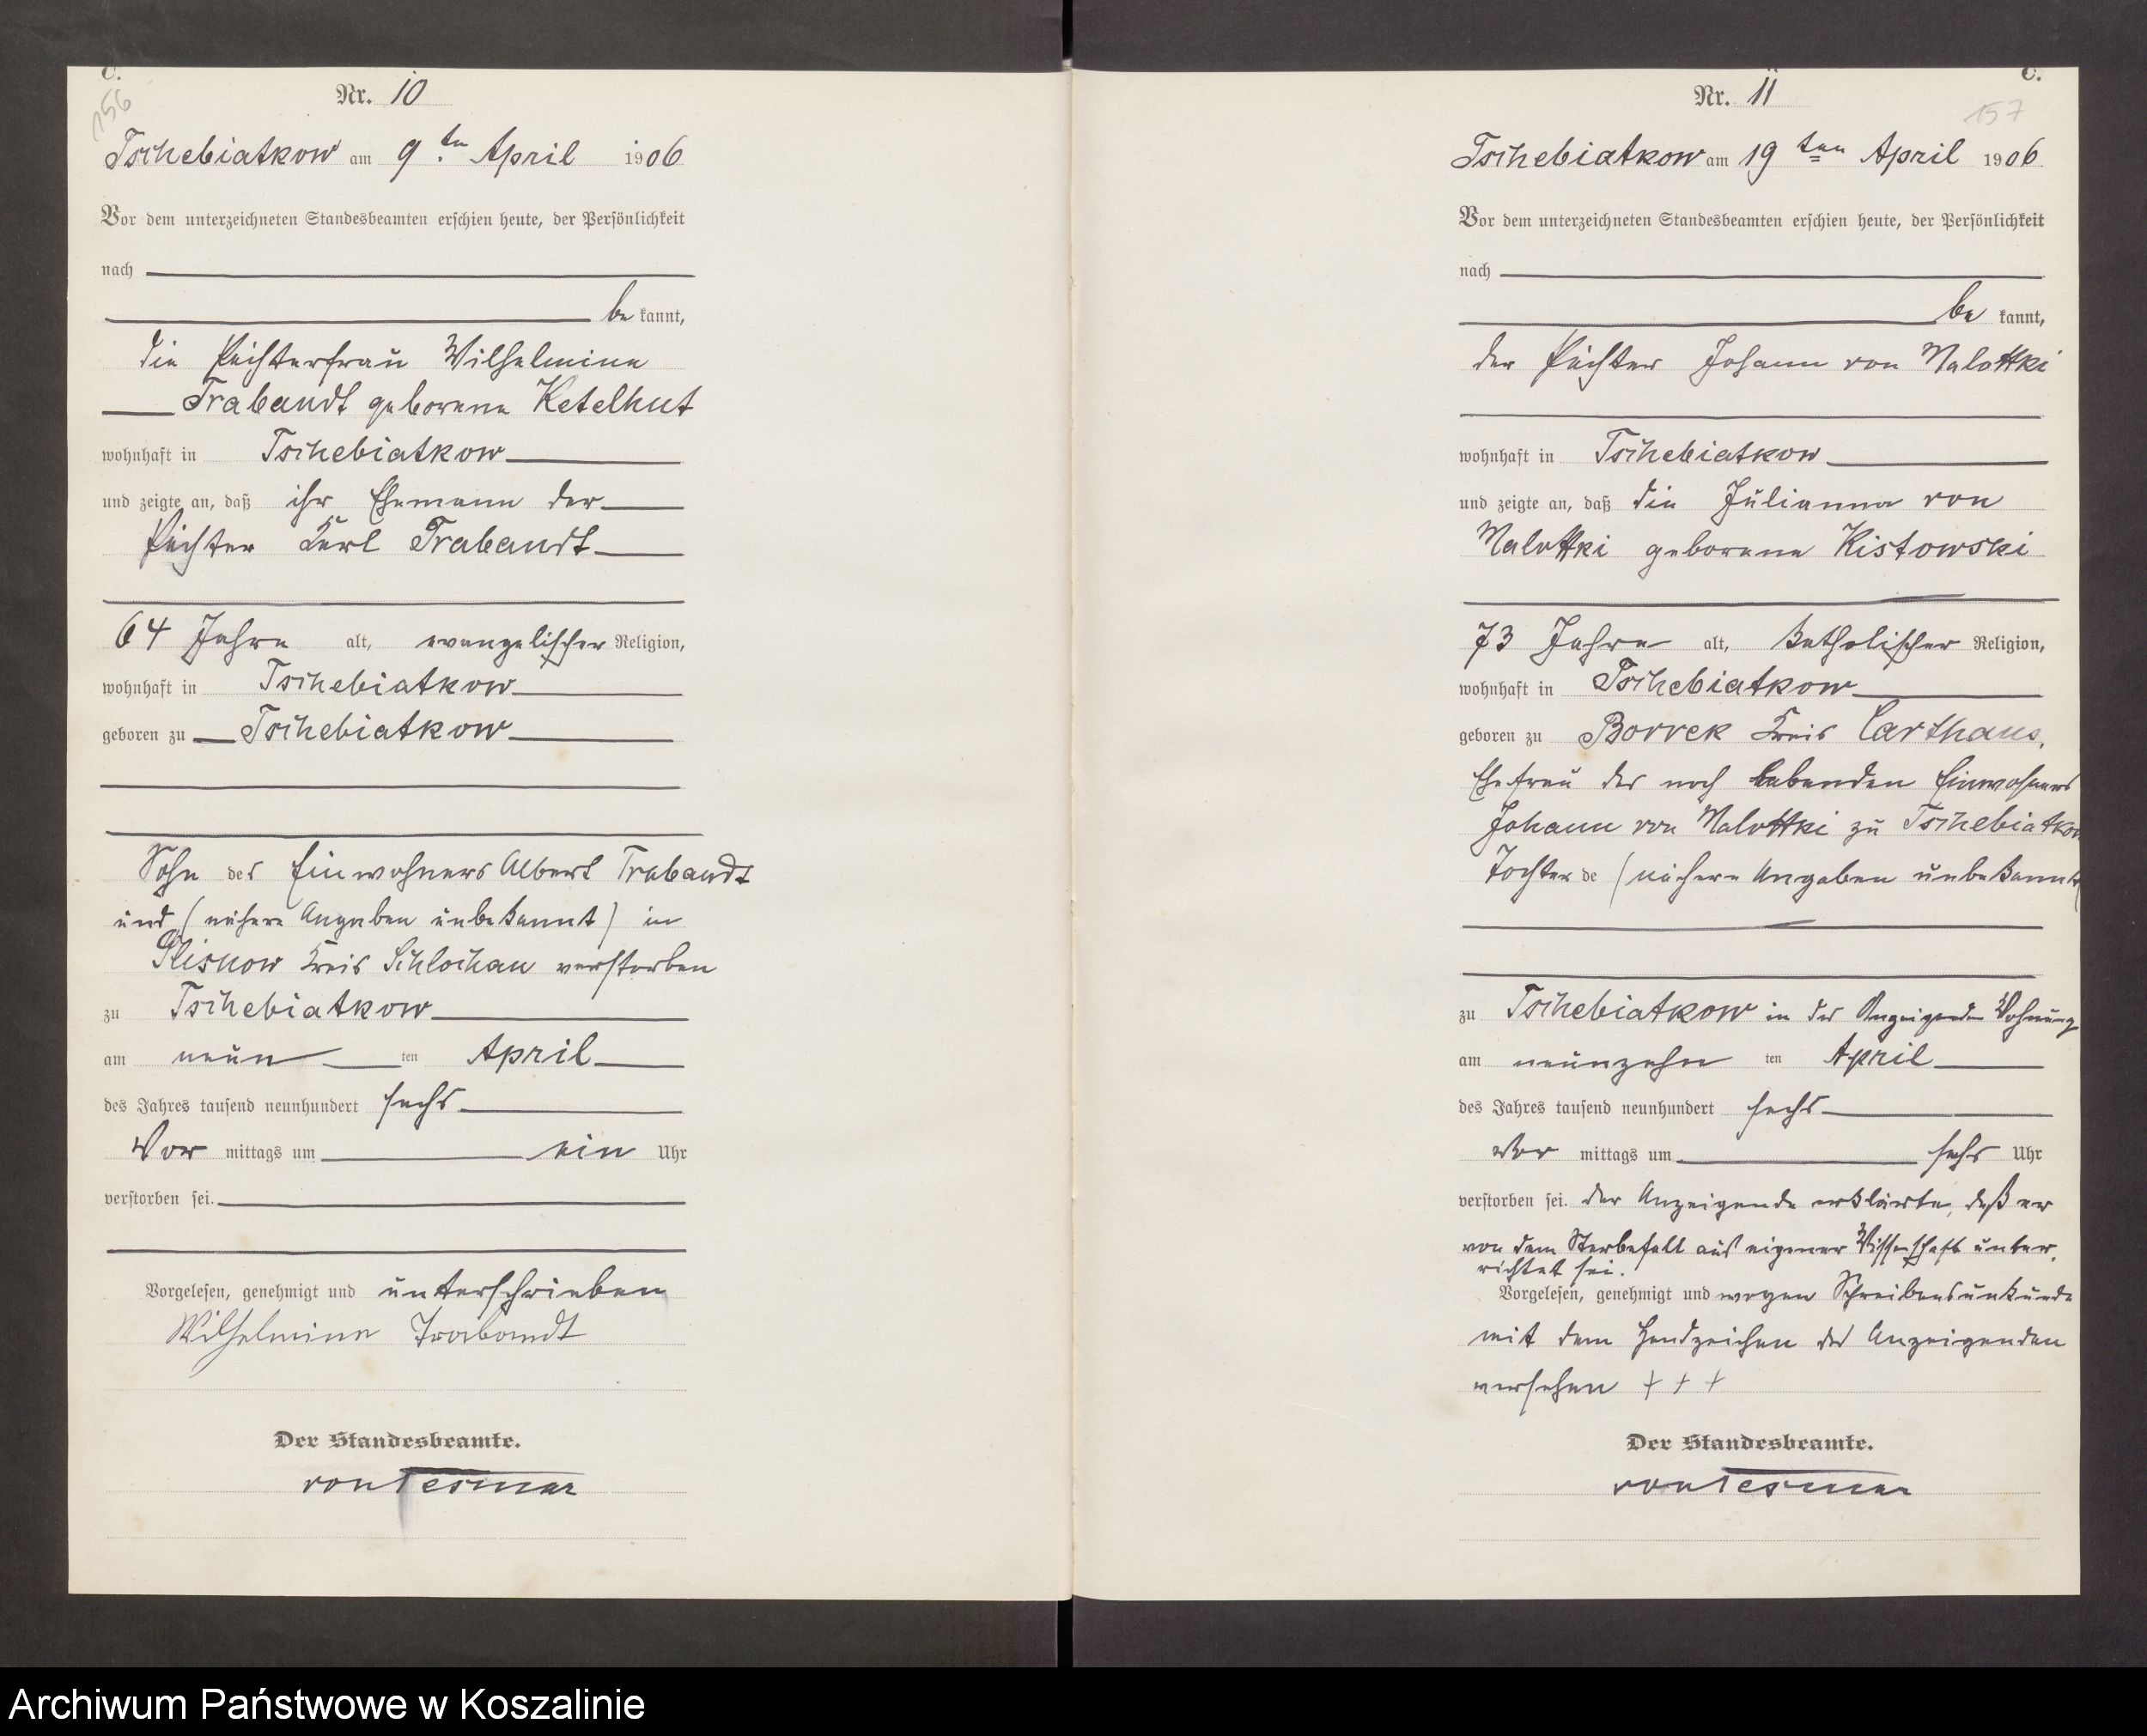 C.
156
Nr. 10
Tschebiatkow am 9ten April 1906
Vor dem unterzeichneten Standesbeamten erschien heute, der Persönlichkeit
nach
be kannt,
die Pächterfrau Wilhelmine
Trabandt geborene Ketelhut
wohnhaft in Tschebiatkow
und zeigte an, daß ihr Ehemann der
Pächter Karl Trabandt
64 Jahre alt, evangelischer Religion,
wohnhaft in Tschebiatkow
geboren zu Tschebiatkow
Sohn des Einwohners Albert Trabandt
und (nähere Angaben unbekannt) in
Glisnow Kreis Schlochau verstorben
zu Tschebiatkow
am neun ten April
des Jahres tausend neunhundert sechs
Vor mittags um ein Uhr
verstorben sei.
Vorgelesen, genehmigt und unterschrieben
Wilhelmine Trabandt
Der Standesbeamte.
von Tesmar
C.
157
Nr. 11
Tschebiatkow am 19ten April 1906
Vor dem unterzeichneten Standesbeamten erschien heute, der Persönlichkeit
nach
be kannt,
der Pächter Johann von Malottki
wohnhaft in Tschebiatkow
und zeigte an, daß die Julianna von
Malottki geborene Kistowski
73 Jahre alt, katholischer Religion,
wohnhaft in Tschebiatkow
geboren zu Borrek Kreis Carthaus,
Ehefrau des noch lebenden Einwohners
Johann von Malottki zu Tschebiatkow
Tochter de (nähere Angaben unbekannt)
zu Tschebiatkow in des Anzeigenden Wohnung
am neunzehn ten April
des Jahres tausend neunhundert sechs
Vor mittags um sechs Uhr
verstorben sei. der Anzeigende erklärte, daß er
von dem Sterbefall aus eigener Wissenschaft unter,
richtet sei.
Vorgelesen, genehmigt und wegen Schreibensunkunde
mit dem Handzeichen des Anzeigenden
versehen + + +
Der Standesbeamte.
von Tesmar
Archiwum Państwowe w Koszalinie